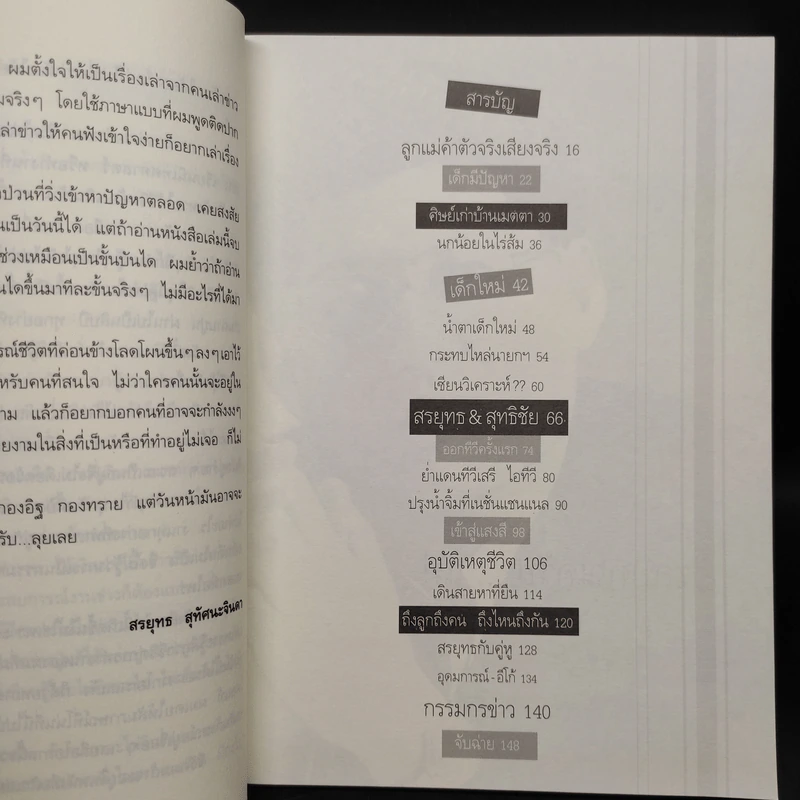 ผมตั้งใจให้เป็นเรื่องเล่าจากคนเล่าข่าว
จริงๆ โดยใช้ภาษาแบบที่ผมพูดติดปาก
เล่าข่าวให้คนฟังเข้าใจง่ายก็อยากเล่าเรื่อง
ป่วนที่วิ่งเข้าหาปัญหาตลอด เคยสงสัย
เป็นวันนี้ได้ แต่ถ้าอ่านหนังสือเล่มนี้จบ
ช่วงเหมือนเป็นขั้นบันได ผมย้ำว่าถ้าอ่าน
ันไดขึ้นมาทีละขั้นจริงๆ ไม่มีอะไรที่ได้มา
รณ์ชีวิตที่ค่อนข้างโลดโผนขึ้นๆลงๆเอาไว้
หรับคนที่สนใจ ไม่ว่าใครคนนั้นจะอยู่ใน
าม แล้วก็อยากบอกคนที่อาจจะกำลังงงๆ
ยงามในสิ่งที่เป็นหรือที่ทำอยู่ไม่เจอ ก็ไม่
กองอิฐ กองทราย แต่วันหน้ามันอาจจะ
รับ...ลุยเลย
สรยุทธ สุทัศนะจินดา
สารบัญ
ลูกแม่ค้าตัวจริงเสียงจริง 16
เด็กมีปัญหา 22
ศิษย์เก่าบ้านเมตตา 30
นกน้อยในไร่ส้ม 36
เด็กใหม่ 42
น้ำตาเด็กใหม่ 48
กระทบไหล่นายกฯ 54
เซียนวิเคราะห์?? 60
สรยุทธ & สุทธิชัย 66
ออกทีวีครั้งแรก 74
ย่ำแดนทีวีเสรี ไอทีวี 80
ปรุงน้ำจิ้มที่เนชั่นแชนแนล 90
เข้าสู่แสงสี 98
อุบัติเหตุชีวิต 106
เดินสายหาที่ยืน 114
ถึงลูกถึงคน ถึงไหนถึงกัน 120
สรยุทธกับคู่หู 128
อุดมการณ์-อีโก้ 134
กรรมกรข่าว 140
จับฉ่าย 148